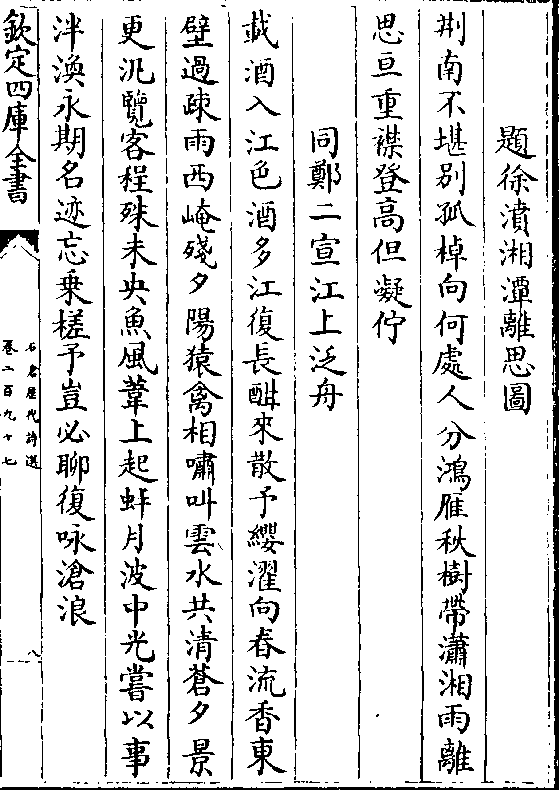 題徐濆湘潭離思圖
荆南不堪別孤棹向何處人分鴻雁秋樹帶瀟湘雨離
思亘重襟登高但凝佇
同鄭二宣江上泛舟
載酒入江色酒多江復長酣來散予纓濯向春流香東
壁過疎雨西崦殘夕陽猿禽相嘯呌雲水共清蒼夕景
更汎覽客程殊未央魚風葦上起蚌月波中光嘗以事
泮渙永期名迹忘乗槎予豈必聊復咏滄浪
欽定四庫全書
石倉歴代詩選
卷二百九十七
八